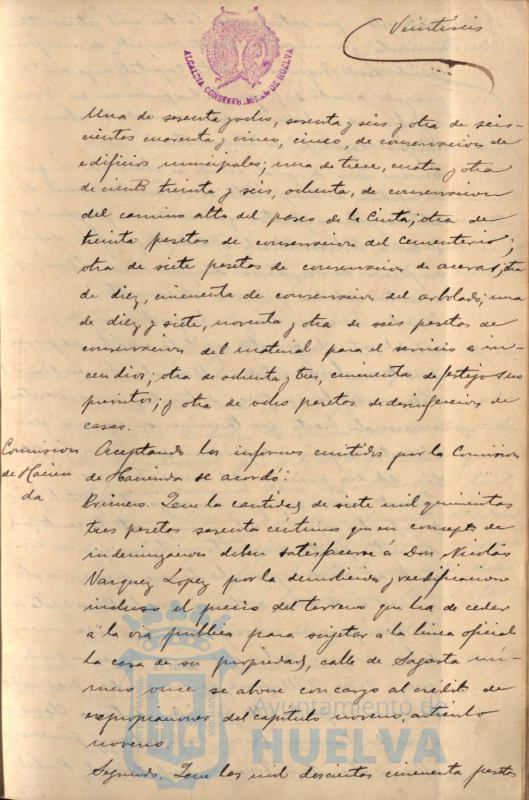 Veintiseis
ALCALDIA CONSTITUCIONAL DE HUELVA
Una de sesenta y ocho, sesenta y seis y otra de seis-
cientos cuarenta y cinco, cinco, de conservacion de
edificios municipales; una de trece, cuatro y otra
de ciento treinta y seis, ochenta, de conservacion
del camino alto del paseo de la Cinta; otra de
treinta pesetas de conservacion del Cementerio;
otra de siete pesetas de conservacion de aceras; otra
de diez, cincuenta de conservacion del arbolado; una
de diez y siete, noventa y otra de seis pesetas de
conservacion del material para el servicio de in-
cendios; otra de ochenta y tres, cincuenta de
y otra de ocho pesetas de desinfeccion de
casas.
Comision
de Hacien
da
Aceptando los informes emitidos por la Comision
de Hacienda se acordó:
Primero. Que la cantidad de siete mil quinientas
tres pesetas sesenta céntimos que en concepto de
indemnizacion deben satisfacerse á Don Nicolás
Vazquez Lopez por la demolicion y reedificacion
incluso el precio del terreno que ha de ceder
á la via pública para sujetar á la linea oficial
la casa de su propiedad, calle de Sagasta nú-
mero once se abone con cargo al crédito de
expropiaciones del capitulo noveno, articulo
noveno.
Segundo. Que las mil doscientas cincuenta pesetas
Ayuntamiento de
HUELVA